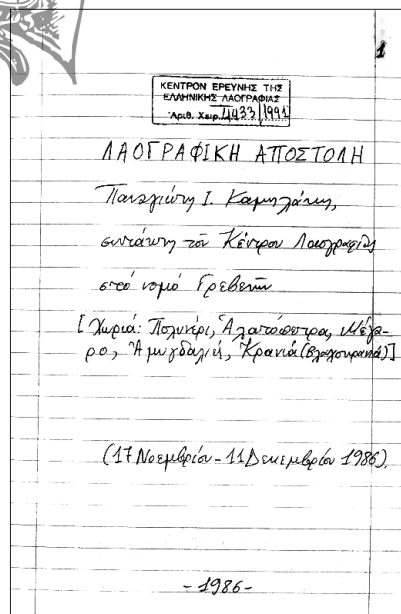 1
ΚΕΝΤΡΟΝ ΕΡΕΥΝΗΣ ΤΗΣ
ΕΛΛΗΝΙΚΗΣ ΛΑΟΓΡΑΦΙΑΣ
Αριθ. Χειρ. 4433/1991
ΛΑΟΓΡΑΦΙΚΗ ΑΠΟΣΤΟΛΗ
Παναγιώτη Ι. Καμηλάκη,
συντάκτη τοῦ Κέντρου Λαογραφίας
στό νομό Γρεβενῶν
[Χωριά: Πολυνέρι, Ἀλατόπετρα, Μέγα-
ρο, Ἀμυγδαλιές, Κρανιά (Βλαχοκρανιά)]
(17 Νοεμβρίου - 11 Δεκεμβρίου 1986).
- 1986 -